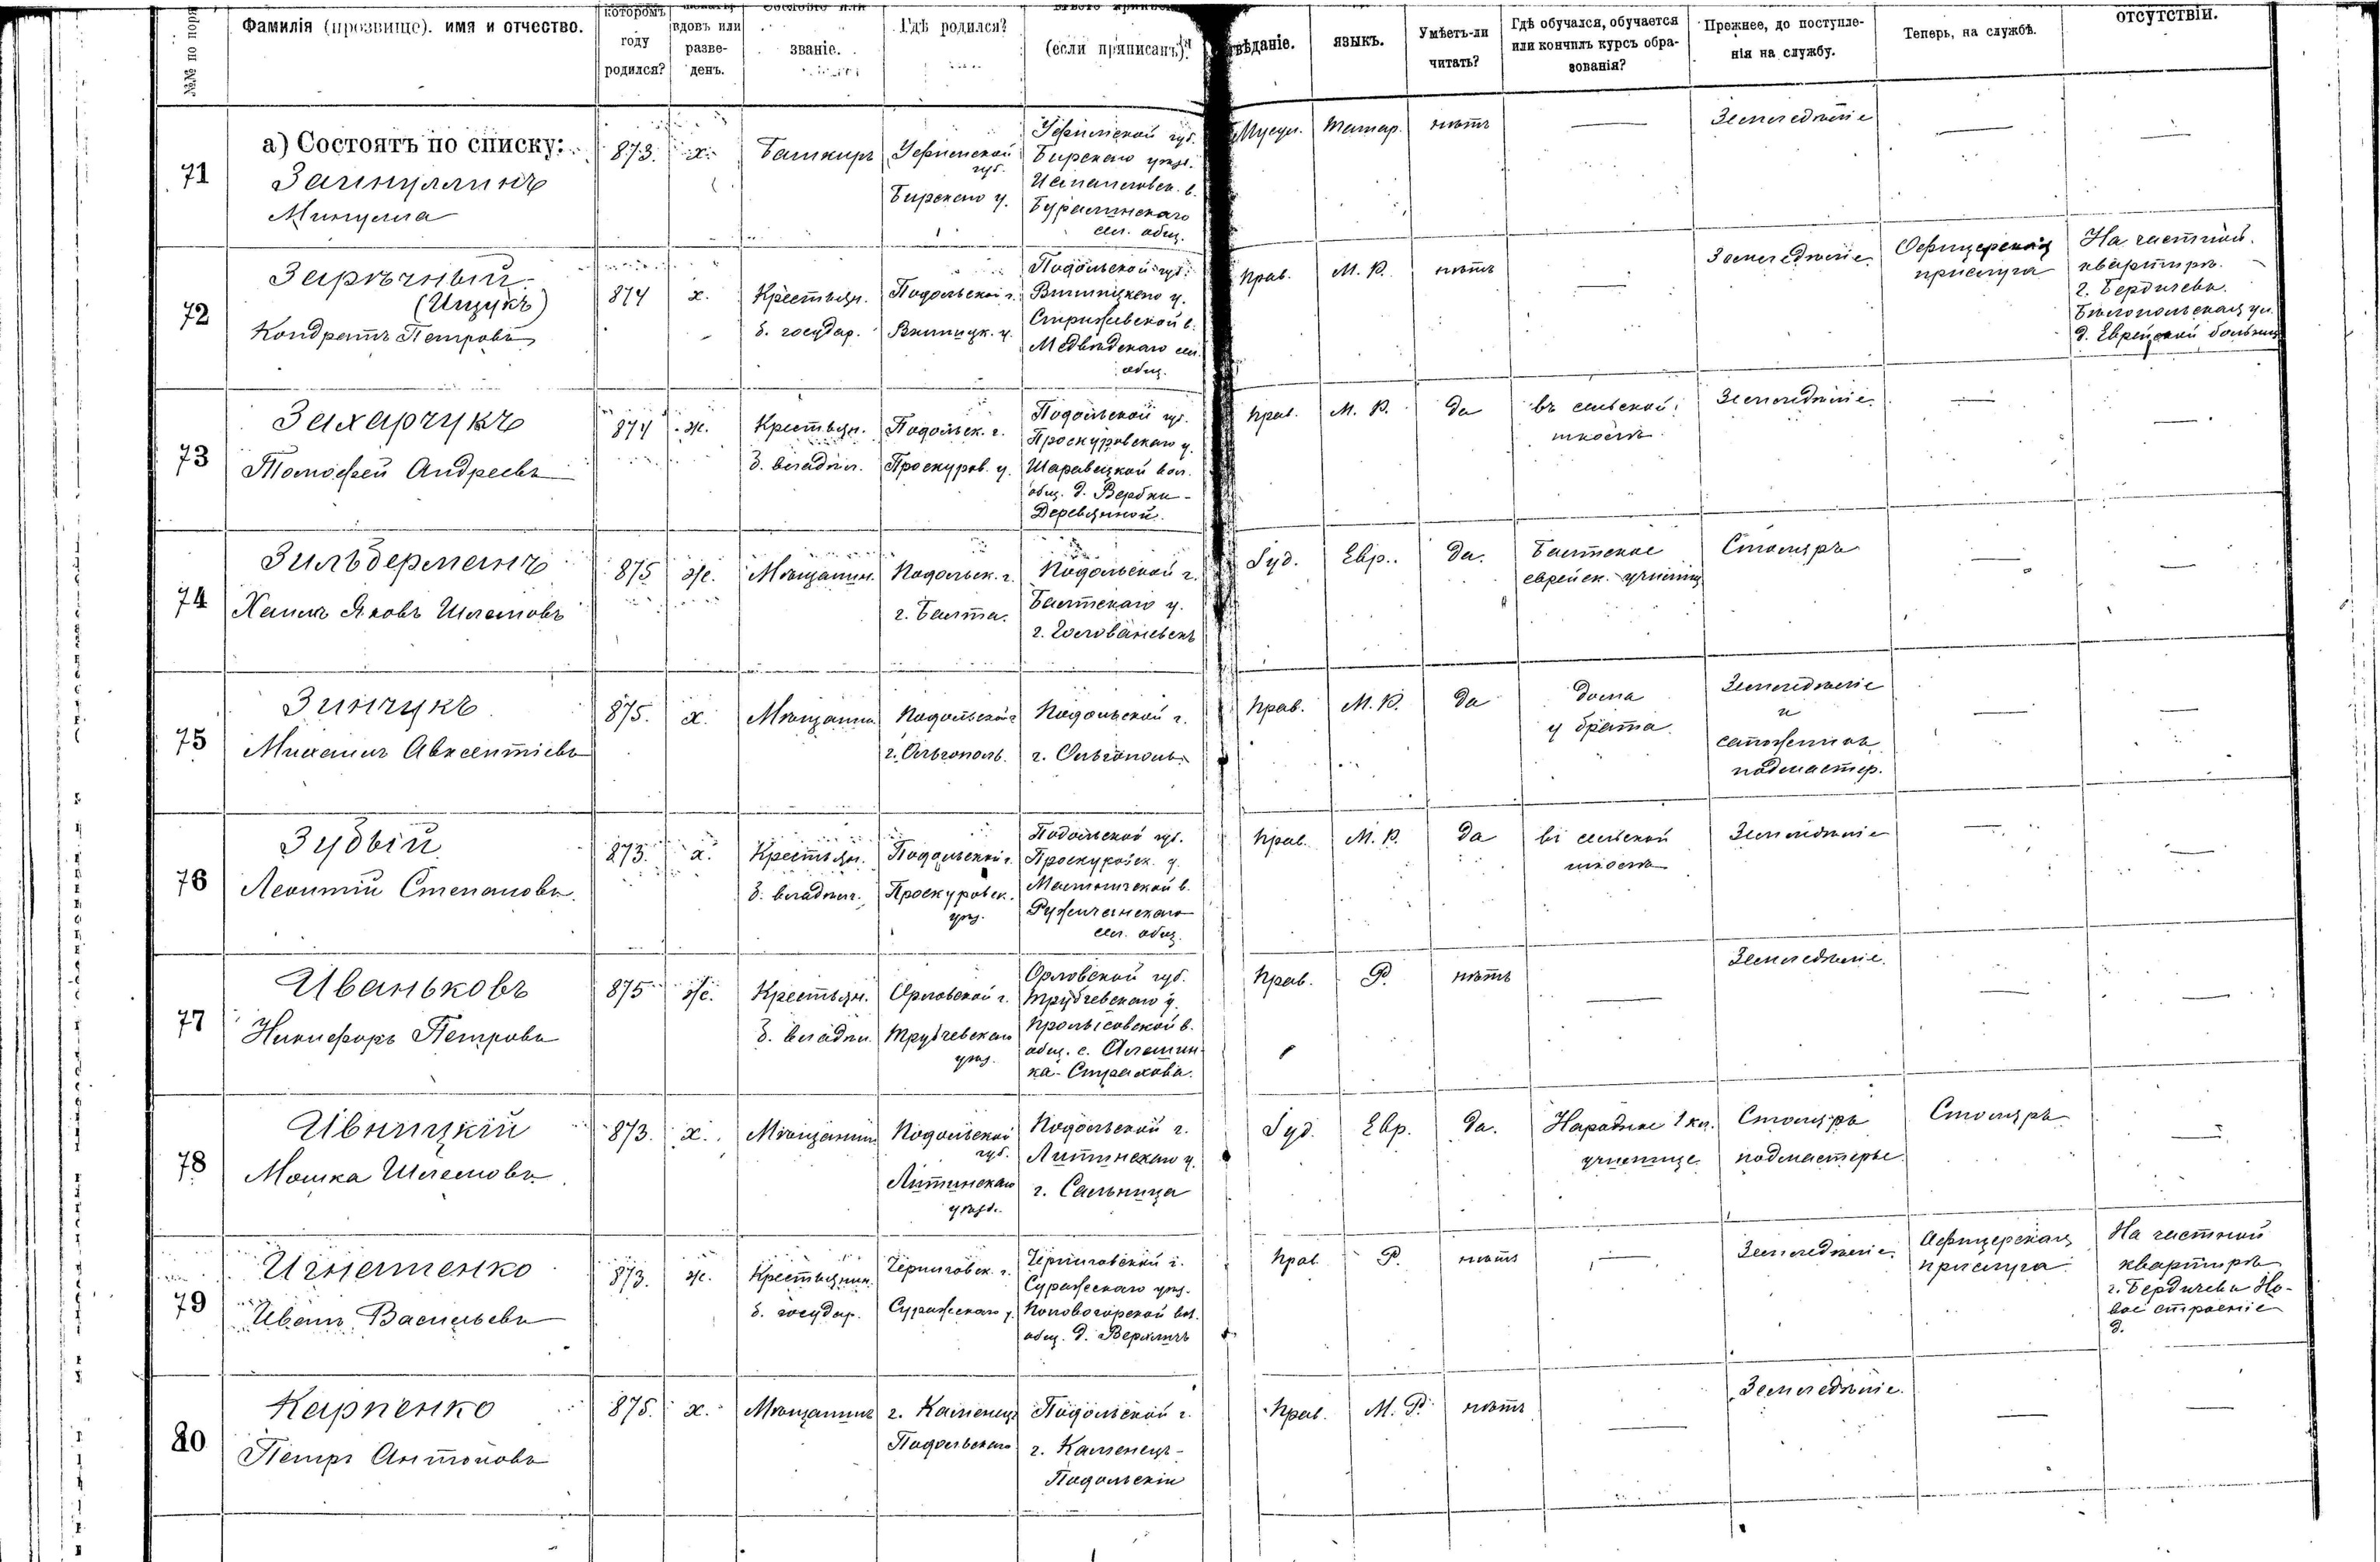 №№ по поряд
Фамилія (прозвище). имя и отчество.
которомъ году родился?
вдовъ или разве-денъ.
званіе.
Гдѣ родился?
(если приписанъ)?
вѣданіе.
языкъ.
Умѣетъ-ли читать?
Гдѣ обучался, обучается или кончилъ курсъ обра-зованія?
Прежнее, до поступле-нія на службу.
Теперь, на службѣ.
отсутствіи.
а) Состоятъ по списку:
71
Загинуллинъ
Минулла
873.
х.
Башкиръ
Уфимской губ.
Бирскаго у.
Уфимской губ.
Бирскаго уѣзд.
сел. общ.
Мусул.
Татар.
нѣтъ
—
Земледѣліе
—
—
72
Зарѣчный
(Ищукъ)
Кондратъ Петровъ
874
х.
Крестьян.
б. государ.
Подольской г.
Винницк. у.
Подольской губ.
Винницкаго у.
Стрижевской в.
Медвѣдскаго сел.
общ.
Прав.
М. Р.
нѣтъ
—
Земледѣліе
Офицерская
прислуга
На частной
квартирѣ.
г. Бердичевъ.
Бѣлопольская ул.
д. Еврейской больниц
73
Захарчукъ
Тимофей Андреевъ
874
ж.
Крестьян.
б. владѣл.
Подольск. г.
Проскуров. у.
Подольской губ.
Проскуровскаго у.
Шаравецкой вол.
общ. д. Вербки-
Деревянной.
Прав.
М. Р.
да
въ сельской
школѣ
Земледѣліе.
—
—
74
Зильберманъ
Хаимъ Яковъ Шлемовъ
875
ж.
Мѣщанин.
Подольск. г.
г. Балта.
Подольской г.
Балтскаго у.
г. Голованевскъ
Іуд.
Евр.
да.
Балтское
еврейск. училищ
Столяръ
—
—
75
Зинчукъ
Михаилъ Авксентіевъ
875.
х.
Мѣщанин
Подольской г
г. Ольгополь.
Подольской г.
г. Ольгополь.
Прав.
М. Р.
да
дома
у брата.
Земледѣліе
и
сапожникъ
подмастер.
—
—
76
Зубый
Леонтій Степановъ.
873.
х.
Крестьян.
б. владѣл.
Подольской г.
Проскуровск.
уѣз.
Подольской губ.
Проскуровск. у.
Ружичанскаго
сел. общ.
Прав.
М. Р.
да
въ сельской
школѣ
Земледѣліе
—
—
77
Иваньковъ
Никифоръ Петровъ
875
ж.
Крестьян.
б. владѣл.
Орловской г.
Трубчевскаго
уѣз.
Орловской губ.
Трубчевскаго у.
общ. с. Алешин-
ка-Страхова.
Прав.
Р.
нѣтъ
—
Земледѣліе.
—
—
78
Ивницкій
Мошка Шлемовъ
873.
х.
Мѣщанин
Подольской
губ.
Литинскаго
уѣзд.
Подольской г.
Литинскаго у.
г. Сальница
Іуд.
Евр.
да.
Народное 1 кл.
училище
Столяръ
подмастерье.
Столяръ
—
79
Игнатенко
Иванъ Васильевъ
873.
ж.
Крестьянин.
б. государ.
Черниговск. г.
Суражскаго у.
Черниговской г.
Суражскаго уѣз.
Поповогорской вол.
общ. д.
Прав.
Р.
нѣтъ
—
Земледѣліе.
Офицерская
прислуга
На частной
квартирѣ
г. Бердичевъ Но-
вое строеніе
д.
80
Карпенко
Петръ Антоновъ
875.
х.
Мѣщанинъ
г. Каменецъ
Подольскаго
Подольской г.
г. Каменецъ-
Подольскій
Прав.
М. Р.
нѣтъ
—
Земледѣліе.
—
—